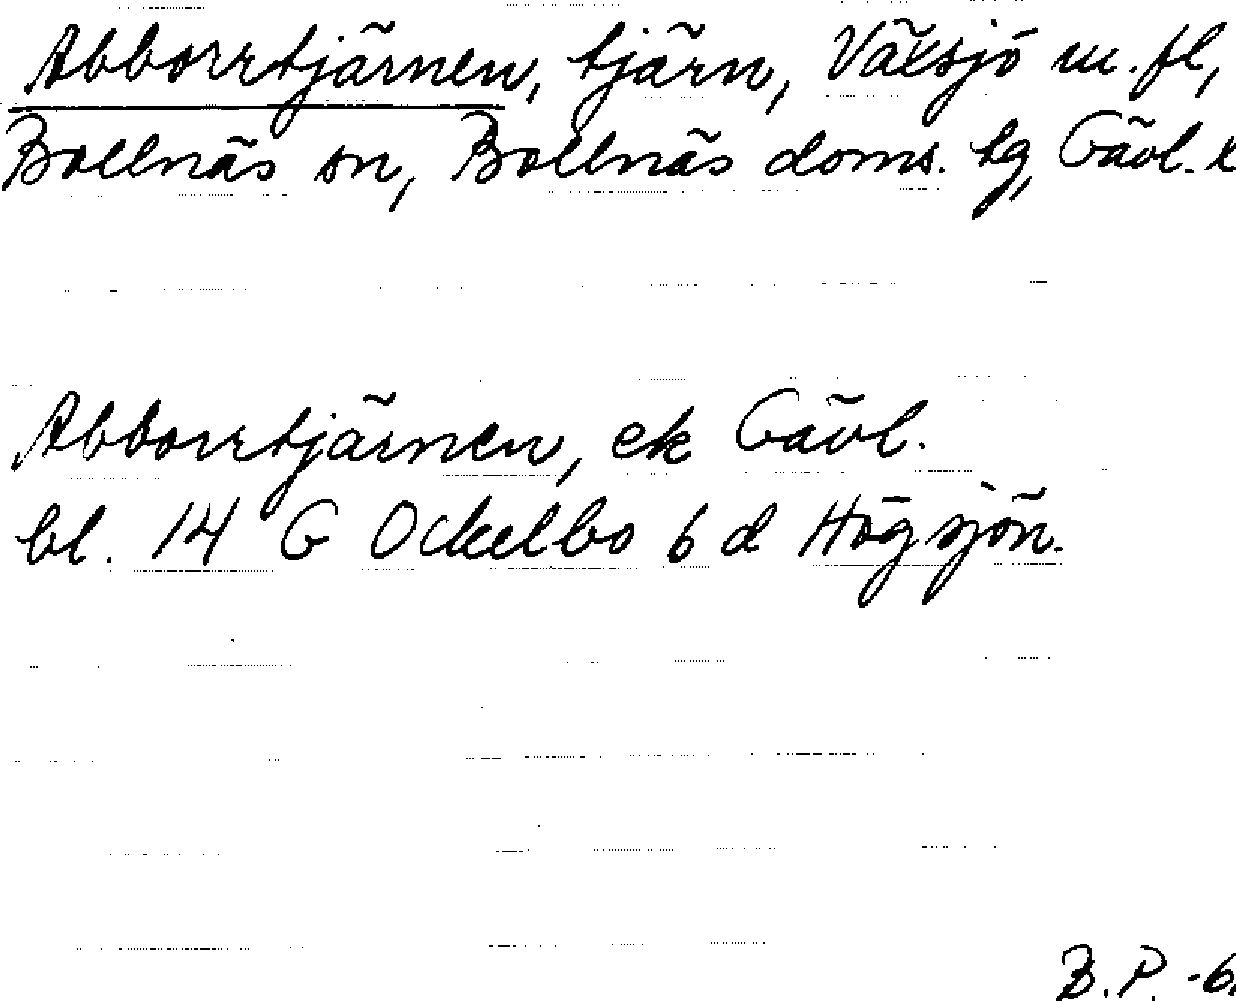 Abborrtjärnen, tjärn, Växsjö m.fl,
Bollnäs sn, Bollnäs doms. tg, Gävl. l
Abborrtjärnen, ek Gävl.
bl. 14 G Ockelbo 6 d Högsjön.
B.P. -6